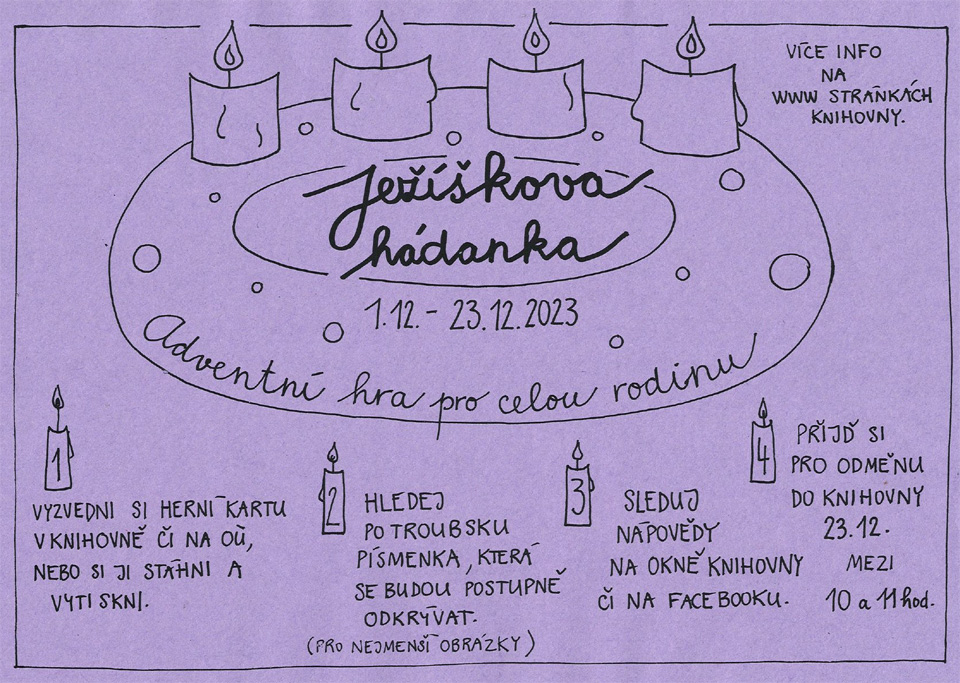 VÍCE INFO
NA
WWW STRÁNKÁCH
KNIHOVNY.
Ježíškova
hádanka
1.12. - 23.12.2023
Adventní hra pro celou rodinu
1
VYZVEDNI SI HERNÍ KARTU
V KNIHOVNĚ ČI NA OÚ,
NEBO SI JI STÁHNI A
VYTISKNI.
2
HLEDEJ
PO TROUBSKU
PÍSMENKA, KTERÁ
SE BUDOU POSTUPNĚ
ODKRÝVAT.
(PRO NEJMENŠÍ OBRÁZKY)
3
SLEDUJ
NÁPOVĚDY
NA OKNĚ KNIHOVNY
ČI NA FACEBOOKU.
4
PŘIJĎ SI
PRO ODMĚNU
DO KNIHOVNY
23.12.
MEZI
10 a 11 hod.